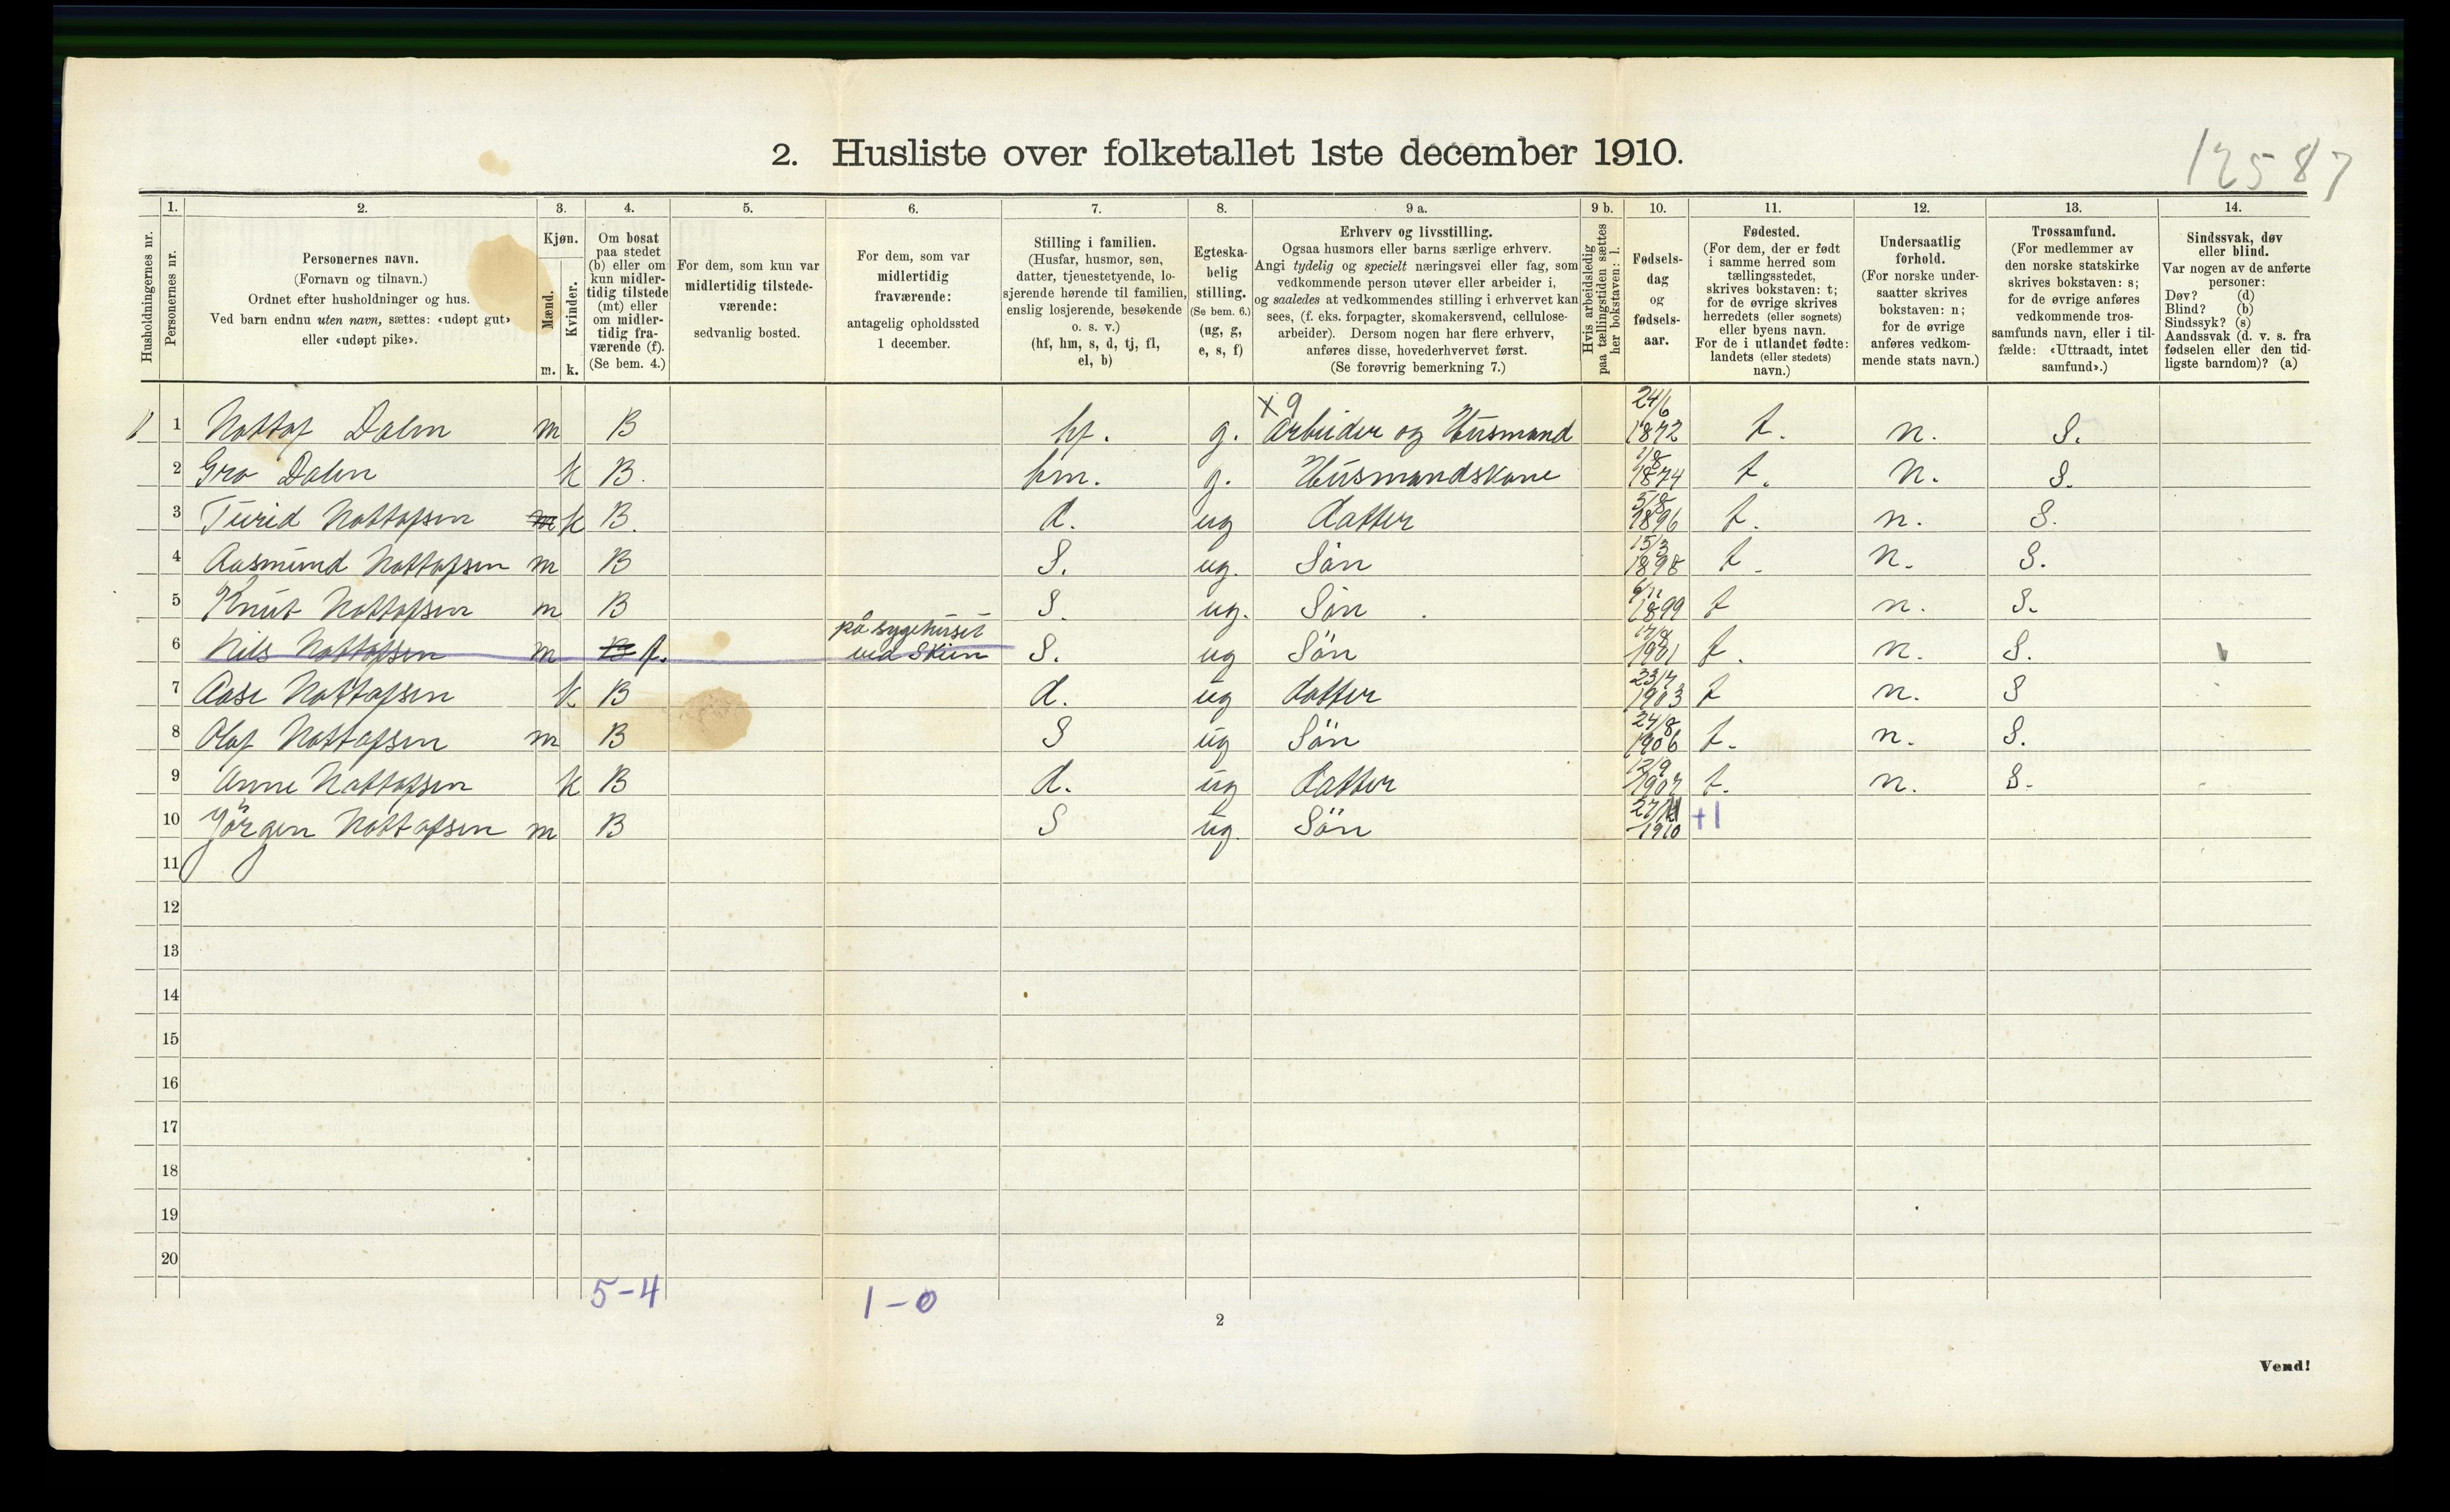 2. Husliste over folketallet 1ste december 1910.
12587
Husholdningernes nr.
1.
Personernes nr.
2.
Personernes navn.
(Fornavn og tilnavn.)
Ordnet efter husholdninger og hus.
Ved barn endnu uten navn, sættes: «udøpt gut»
eller «udøpt pike».
3.
Kjøn.
Mænd.
Kvinder.
m. k.
4.
Om bosat
paa stedet
(b) eller om
kun midler-
tidig tilstede
(mt) eller
om midler-
tidig fra-
værende (f).
(Se bem. 4.)
5.
For dem, som kun var
midlertidig tilstede-
værende:
sedvanlig bosted.
6.
For dem, som var
midlertidig
fraværende:
antagelig opholdssted
1 december.
7.
Stilling i familien.
(Husfar, husmor, søn,
datter, tjenestetyende, lo-
sjerende hørende til familien,
enslig losjerende, besøkende
o. s. v.)
(hf, hm, s, d, tj, fl,
el, b)
8.
Egteska-
belig
stilling.
(Se bem. 6.)
(ug, g,
e, s, f)
9 a.
Erhverv og livsstilling.
Ogsaa husmors eller barns særlige erhverv.
Angi tydelig og specielt næringsvei eller fag, som
vedkommende person utøver eller arbeider i,
og saaledes at vedkommendes stilling i erhvervet kan
sees, (f. eks. forpagter, skomakersvend, cellulose-
arbeider). Dersom nogen har flere erhverv,
anføres disse, hovederhvervet først.
(Se forøvrig bemerkning 7.)
9 b.
Hvis arbeidsledig
paa tællingstiden sættes
her bokstaven: l.
10.
Fødsels-
dag
og
fødsels-
aar.
11.
Fødested.
(For dem, der er født
i samme herred som
tællingsstedet,
skrives bokstaven: t;
for de øvrige skrives
herredets (eller sognets)
eller byens navn.
For de i utlandet fødte:
landets (eller stedets)
navn.)
12.
Undersaatlig
forhold.
(For norske under-
saatter skrives
bokstaven: n;
for de øvrige
anføres vedkom-
mende stats navn.)
13.
Trossamfund.
(For medlemmer av
den norske statskirke
skrives bokstaven: s;
for de øvrige anføres
vedkommende tros-
samfunds navn, eller i til-
fælde: «Uttraadt, intet
samfund».)
14.
Sindssvak, døv
eller blind.
Var nogen av de anførte
personer:
Døv? (d)
Blind? (b)
Sindssyk? (s)
Aandssvak (d. v. s. fra
fødselen eller den tid-
ligste barndom)? (a)
x 9
1 Nottof Dalen m B hf. g. Arbeider og Husmand 24/6 1872 t. n. S.
2 Gro Dalen k B. hm. g. Husmandskone 1/8 1874 t. n. S.
3 Turid Nottofsen m k B. d. ug datter 5/8 1896 t. n. S.
4 Aasmund Nottofsen m B S. ug. Sön 15/3 1898 t. n. S.
5 Knut Nottofsen m B S. ug. Sön 6/11 1899 t n. S.
på sygehuset
6 Nils Nottofsen m B f. ved Skien S. ug Sön 17/8 1901 t. n. S.
7 Aase Nottofsen k B d. ug datter 23/7 1903 t n. S
8 Olaf Nottofsen m B S ug Sön 24/8 1906 t. n. S.
9 Anne Nottofsen k B d. ug datter 12/9 1907 t. n. S.
10 Jörgen Nottofsen m B S ug. Sön 1910 +1
11
12
13
14
15
16
17
18
19
20
5-4 1-0
2
Vend!